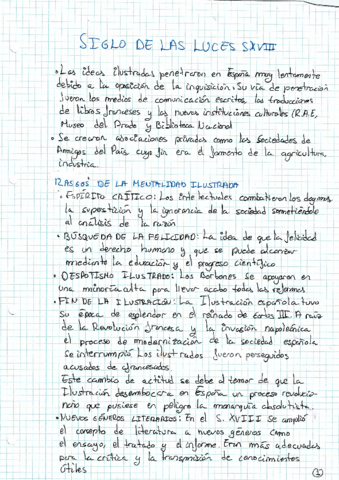 SIGLO DE LAS LUCES SXVIII
• Las ideas ilustradas penetraron en España muy lentamente
debido a la oposición de la inquisición. Su vía de penetración
fueron los medios de comunicación escritos, las traducciones
de libros franceses y las nuevas instituciones culturales (R.A.E,
Museo del Prado y Biblioteca Nacional
• Se crearon asociaciones privadas como las Sociedades de
Amigos del País cuyo fin era el fomento de la agricultura
industria.
RASGOS DE LA MENTALIDAD ILUSTRADA
• ESPÍRITO CRÍTICO: Los intelectuales combatieron los dogmas
la superstición y la ignorancia de la sociedad sometiéndolo
al análisis de la razón
• BÚSQUEDA DE LA FELICIDAD: La idea de que la felicidad
es un derecho humano y que se puede alcanzar
mediante la educación y el progreso científico
• DESPOTISMO ILUSTRADO: Los Borbones se apoyaron en
una minoría culta para llevar acabo todas las reformas
• FIN DE LA ILUSTRACIÓN: La Ilustración española tuvo
su época de esplendor en el reinado de Carlos III. A raíz
de la Revolución francesa y la invasión napoleónica
el proceso de modernización de la sociedad española
se interrumpió. Los ilustrados fueron perseguidos
acusados de afrancesados.
Este cambio de actitud se debe al temor de que la
Ilustración desembocara en España un proceso revolucio-
nario que pusiese en peligro la monarquía absolutista.
• NUEVOS GÉNEROS LITERARIOS: En el S. XVIII se amplió
el concepto de literatura a nuevos géneros como
el ensayo, el tratado y el informe. Eran más adecuados
para la crítica y la transmisión de conocimientos
útiles